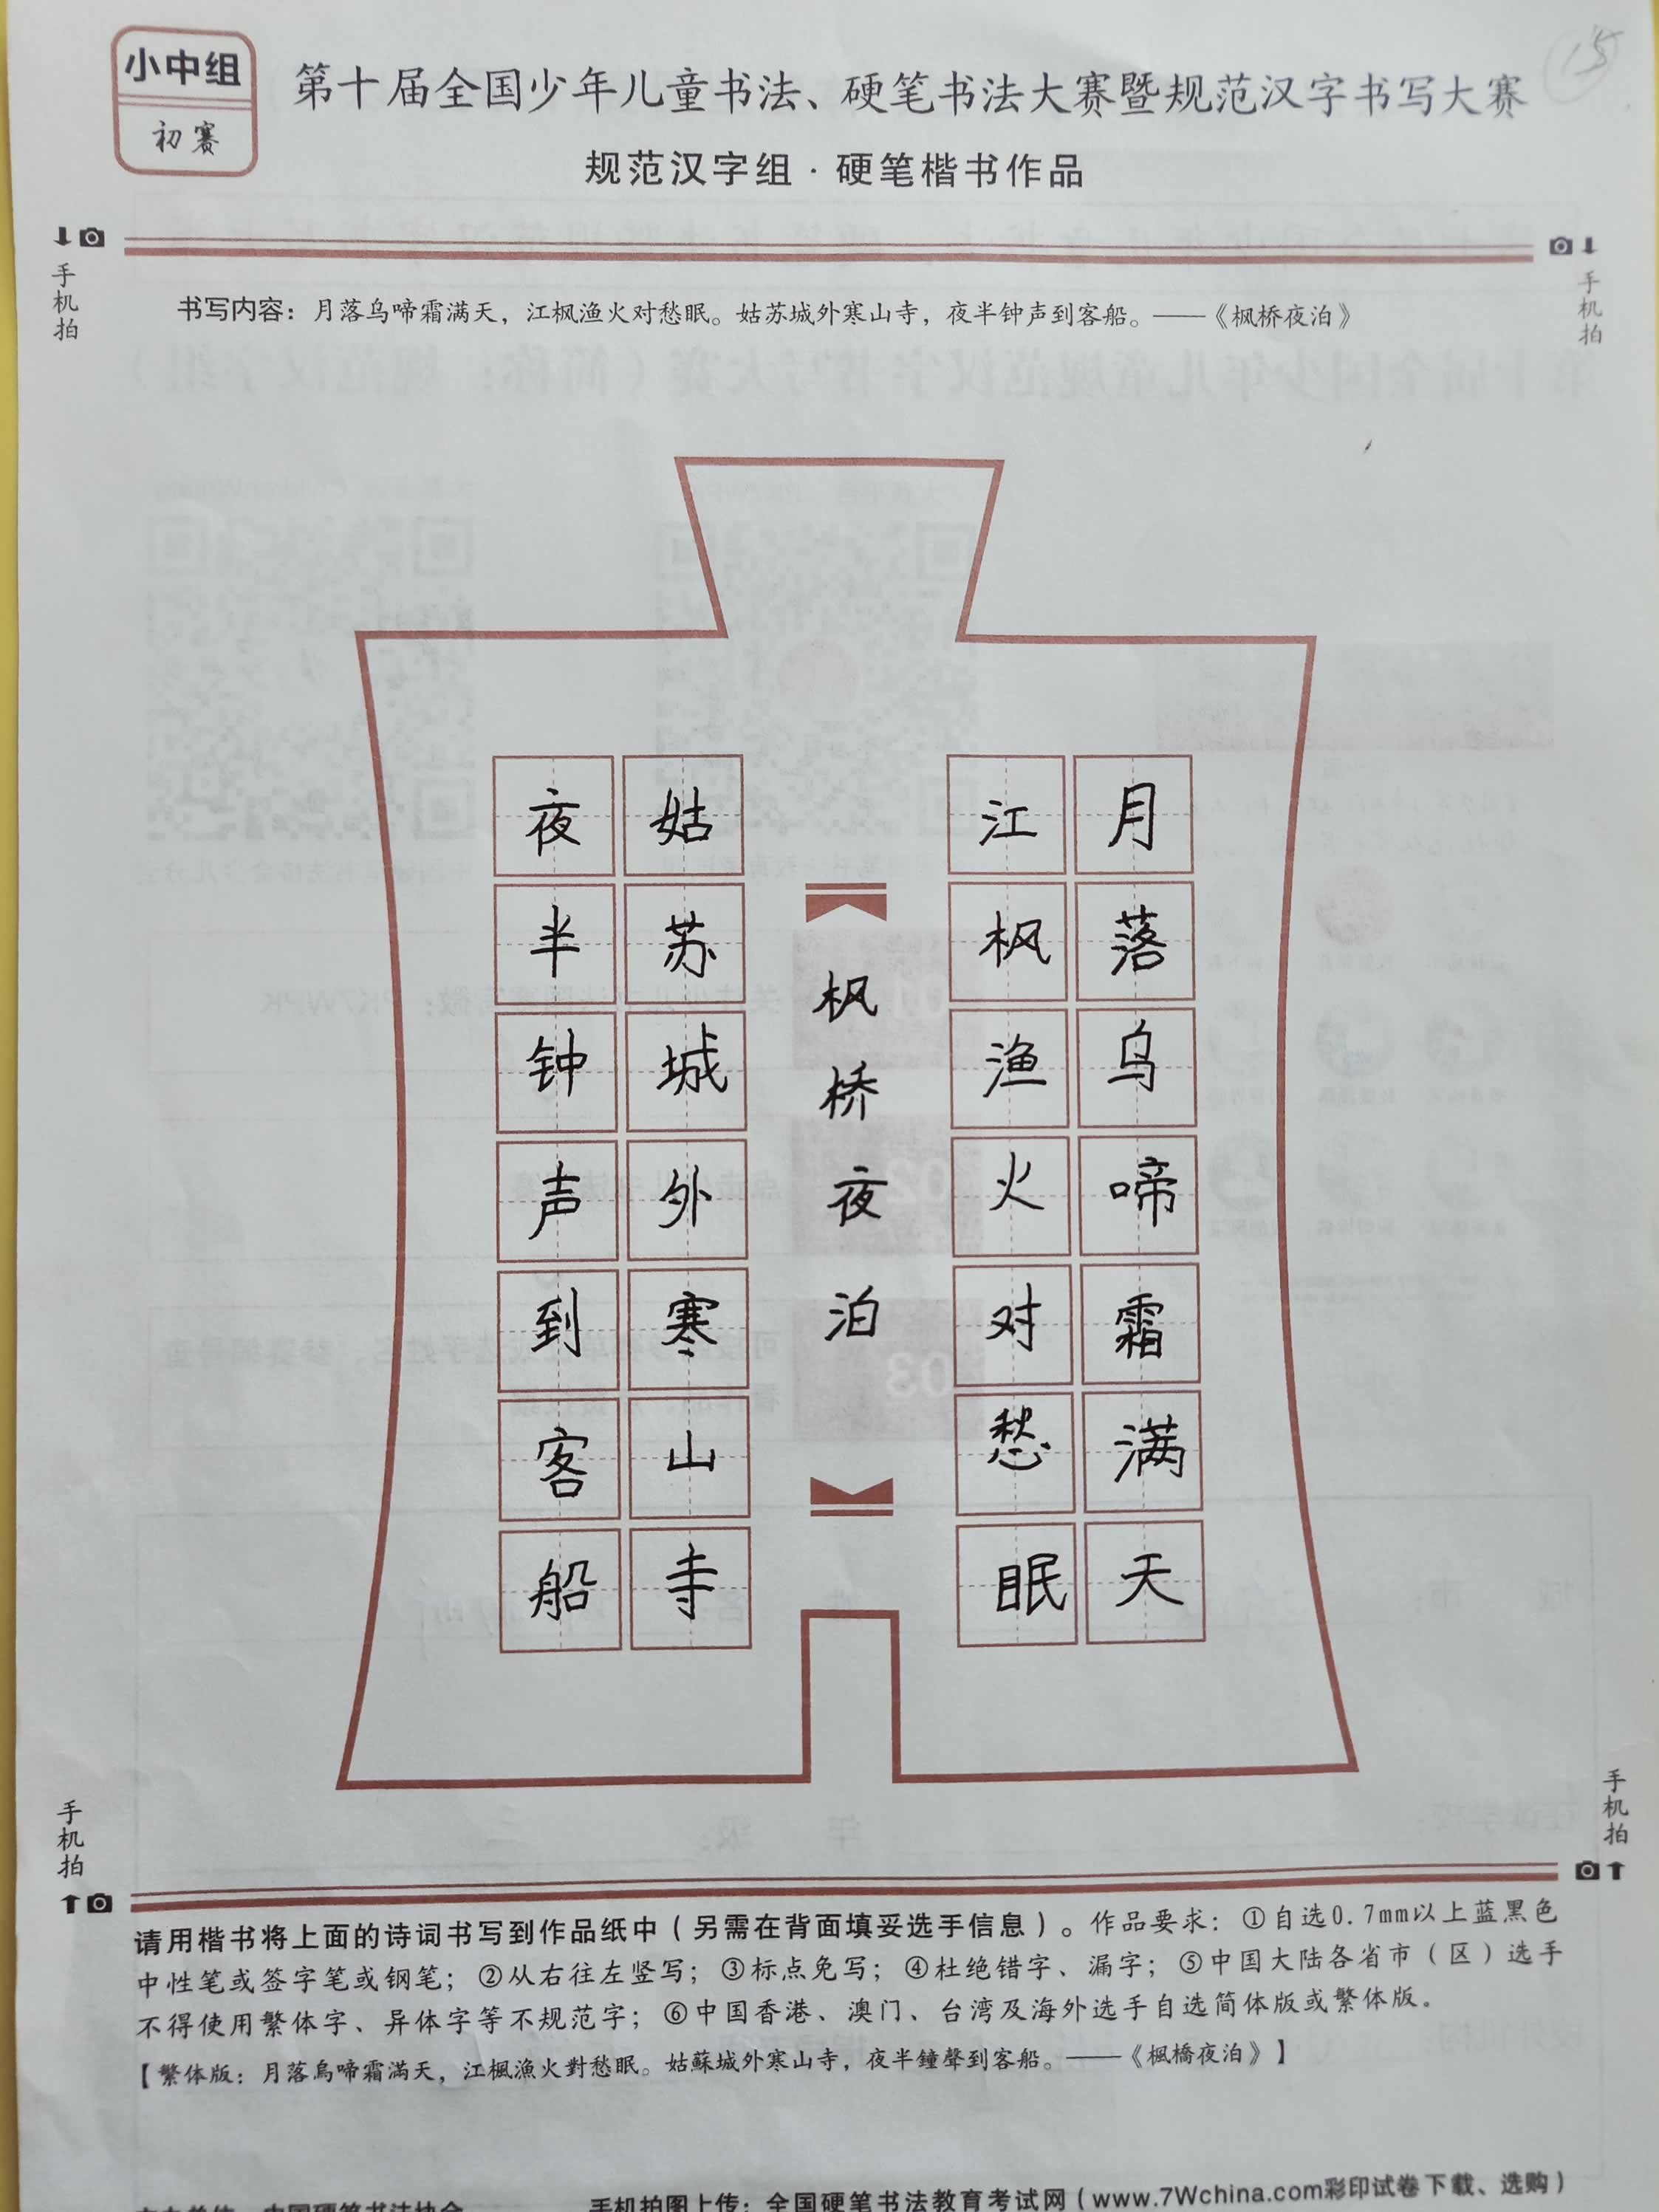 小中组
初赛
15
第十届全国少年儿童书法、硬笔书法大赛暨规范汉字书写大赛
规范汉字组·硬笔楷书作品
手机拍
手机拍
书写内容：月落乌啼霜满天，江枫渔火对愁眠。姑苏城外寒山寺，夜半钟声到客船。——《枫桥夜泊》
月落乌啼霜满天
江枫渔火对愁眠
枫桥夜泊
姑苏城外寒山寺
夜半钟声到客船
手机拍
手机拍
请用楷书将上面的诗词书写到作品纸中（另需在背面填妥选手信息）。作品要求：①自选0.7mm以上蓝黑色
中性笔或签字笔或钢笔；②从右往左竖写；③标点免写；④杜绝错字、漏字；⑤中国大陆各省市（区）选手
不得使用繁体字、异体字等不规范字；⑥中国香港、澳门、台湾及海外选手自选简体版或繁体版。
【繁体版：月落烏啼霜滿天，江楓漁火對愁眠。姑蘇城外寒山寺，夜半鐘聲到客船。——《楓橋夜泊》】
手机拍图上传：全国硬笔书法教育考试网（www.7Wchina.com彩印试卷下载、选购）